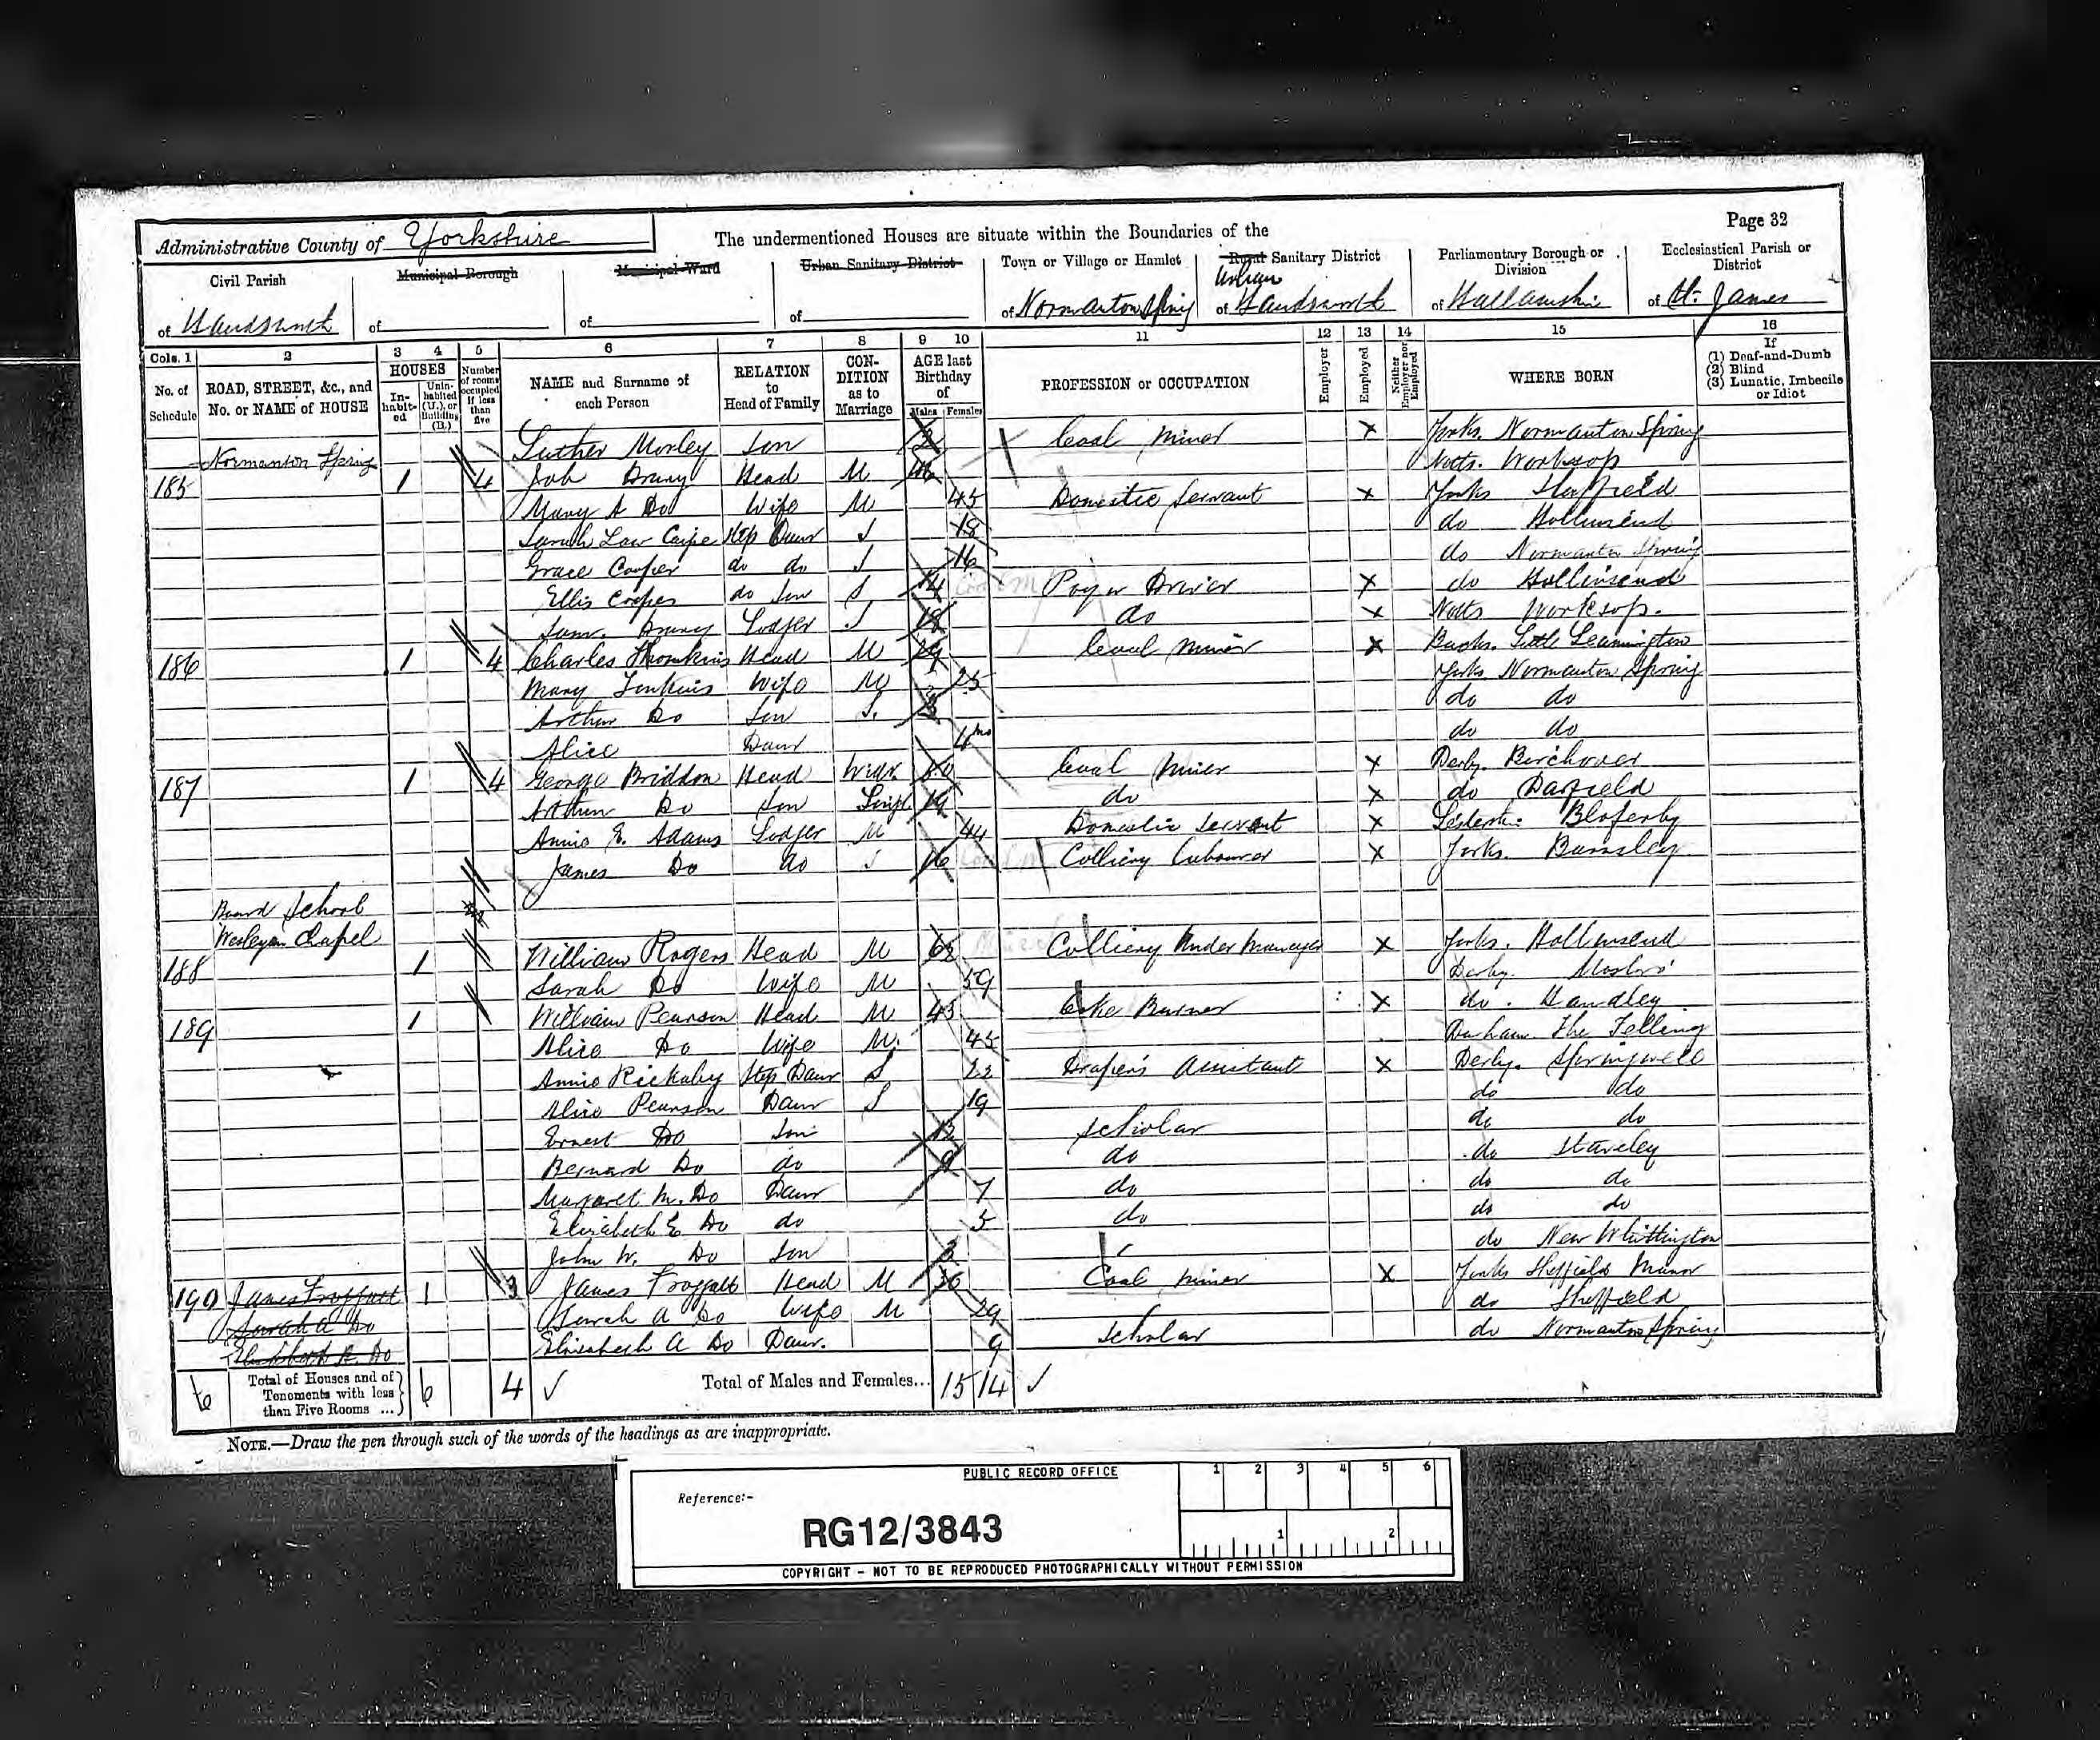 Page 32
Administrative County of Yorkshire
The undermentioned Houses are situate within the Boundaries of the
Civil Parish
Municipal Borough
Municipal Ward
Urban Sanitary District
Town or Village or Hamlet
Rural Sanitary District
Urban
Parliamentary Borough or Division
Ecclesiastical Parish or District
of Handsworth
of
of
of
of Normanton Spring
of Handsworth
of Hallamshire
of St. James
Cols. 1 2 3 4 5 6 7 8 9 10 11 12 13 14 15 16
No. of Schedule
ROAD, STREET, &c., and No. or NAME of HOUSE
HOUSES
In-habit-ed
Unin-habited (U.), or Building (B.)
Number of rooms occupied if less than five
NAME and Surname of each Person
RELATION to Head of Family
CON-DITION as to Marriage
AGE last Birthday of
Males Females
PROFESSION or OCCUPATION
Employer
Employed
Neither Employer nor Employed
WHERE BORN
If
(1) Deaf-and-Dumb
(2) Blind
(3) Lunatic, Imbecile or Idiot
Luther Morley Son Coal Miner X Yorks. Normanton Spring
Normanton Spring
185 1 4 Job Drury Head M 46 Notts. Worksop
Mary A Do Wife M 45 Domestic Servant X Yorks Sheffield
Sarah Step Daur S 18 do Hollinsend
Grace Cooper do do S 16 do Normanton Spring
Ellis Cooper do Son S 14 Pony Driver X do Hollinsend
Drury Lodger S 18 do X Notts Worksop.
186 1 4 Charles Head M 29 Coal Miner X Bucks. Little
Mary Wife M 25 Yorks. Normanton Spring
Arthur Do Son S. 3 do do
Alice Daur 4mo do do
187 1 4 George Briddon Head Widr 50 Coal Miner X Derby. Birchover
Arthur Do Son Singl 19 do X do
Annie E. Adams Lodger M 44 Domestic Servant X
James Do do S 16 Colliery Labourer X Yorks. Barnsley
Board School
Wesleyan Chapel
188 1 William Rogers Head M 62 Colliery Under Manager X Yorks. Hollinsend
Sarah Do Wife M 59 Derby. Mosbro'
189 1 William Pearson Head M 43 Coke Burner X do. Handley
Alice Do Wife M. 45 Durham The Felling
Annie Rickaby Step Daur S 22 Draper's Assistant X Derby. Springwell
Alice Pearson Daur S 19 do do
Ernest Do Son 12 Scholar do do
Bernard Do do 9 do do Staveley
Margaret M. Do Daur 7 do do do
Elizabeth E Do do 5 do do do
John W. Do Son 3 do New Whittington
190 James Froggatt 1 3 James Froggatt Head M 30 Coal Miner X Yorks Sheffield Manor
Sarah A Do Sarah A Do Wife M 29 do Sheffield
Elizabeth A. Do Elizabeth A Do Daur. 9 Scholar do Normanton Spring
6 Total of Houses and of Tenements with less than Five Rooms ... 6 4 ✓ Total of Males and Females... 15 14 ✓
NOTE.—Draw the pen through such of the words of the headings as are inappropriate.
PUBLIC RECORD OFFICE
Reference:-
RG12/3843
1 2 3 4 5 6
1 2
COPYRIGHT - NOT TO BE REPRODUCED PHOTOGRAPHICALLY WITHOUT PERMISSION